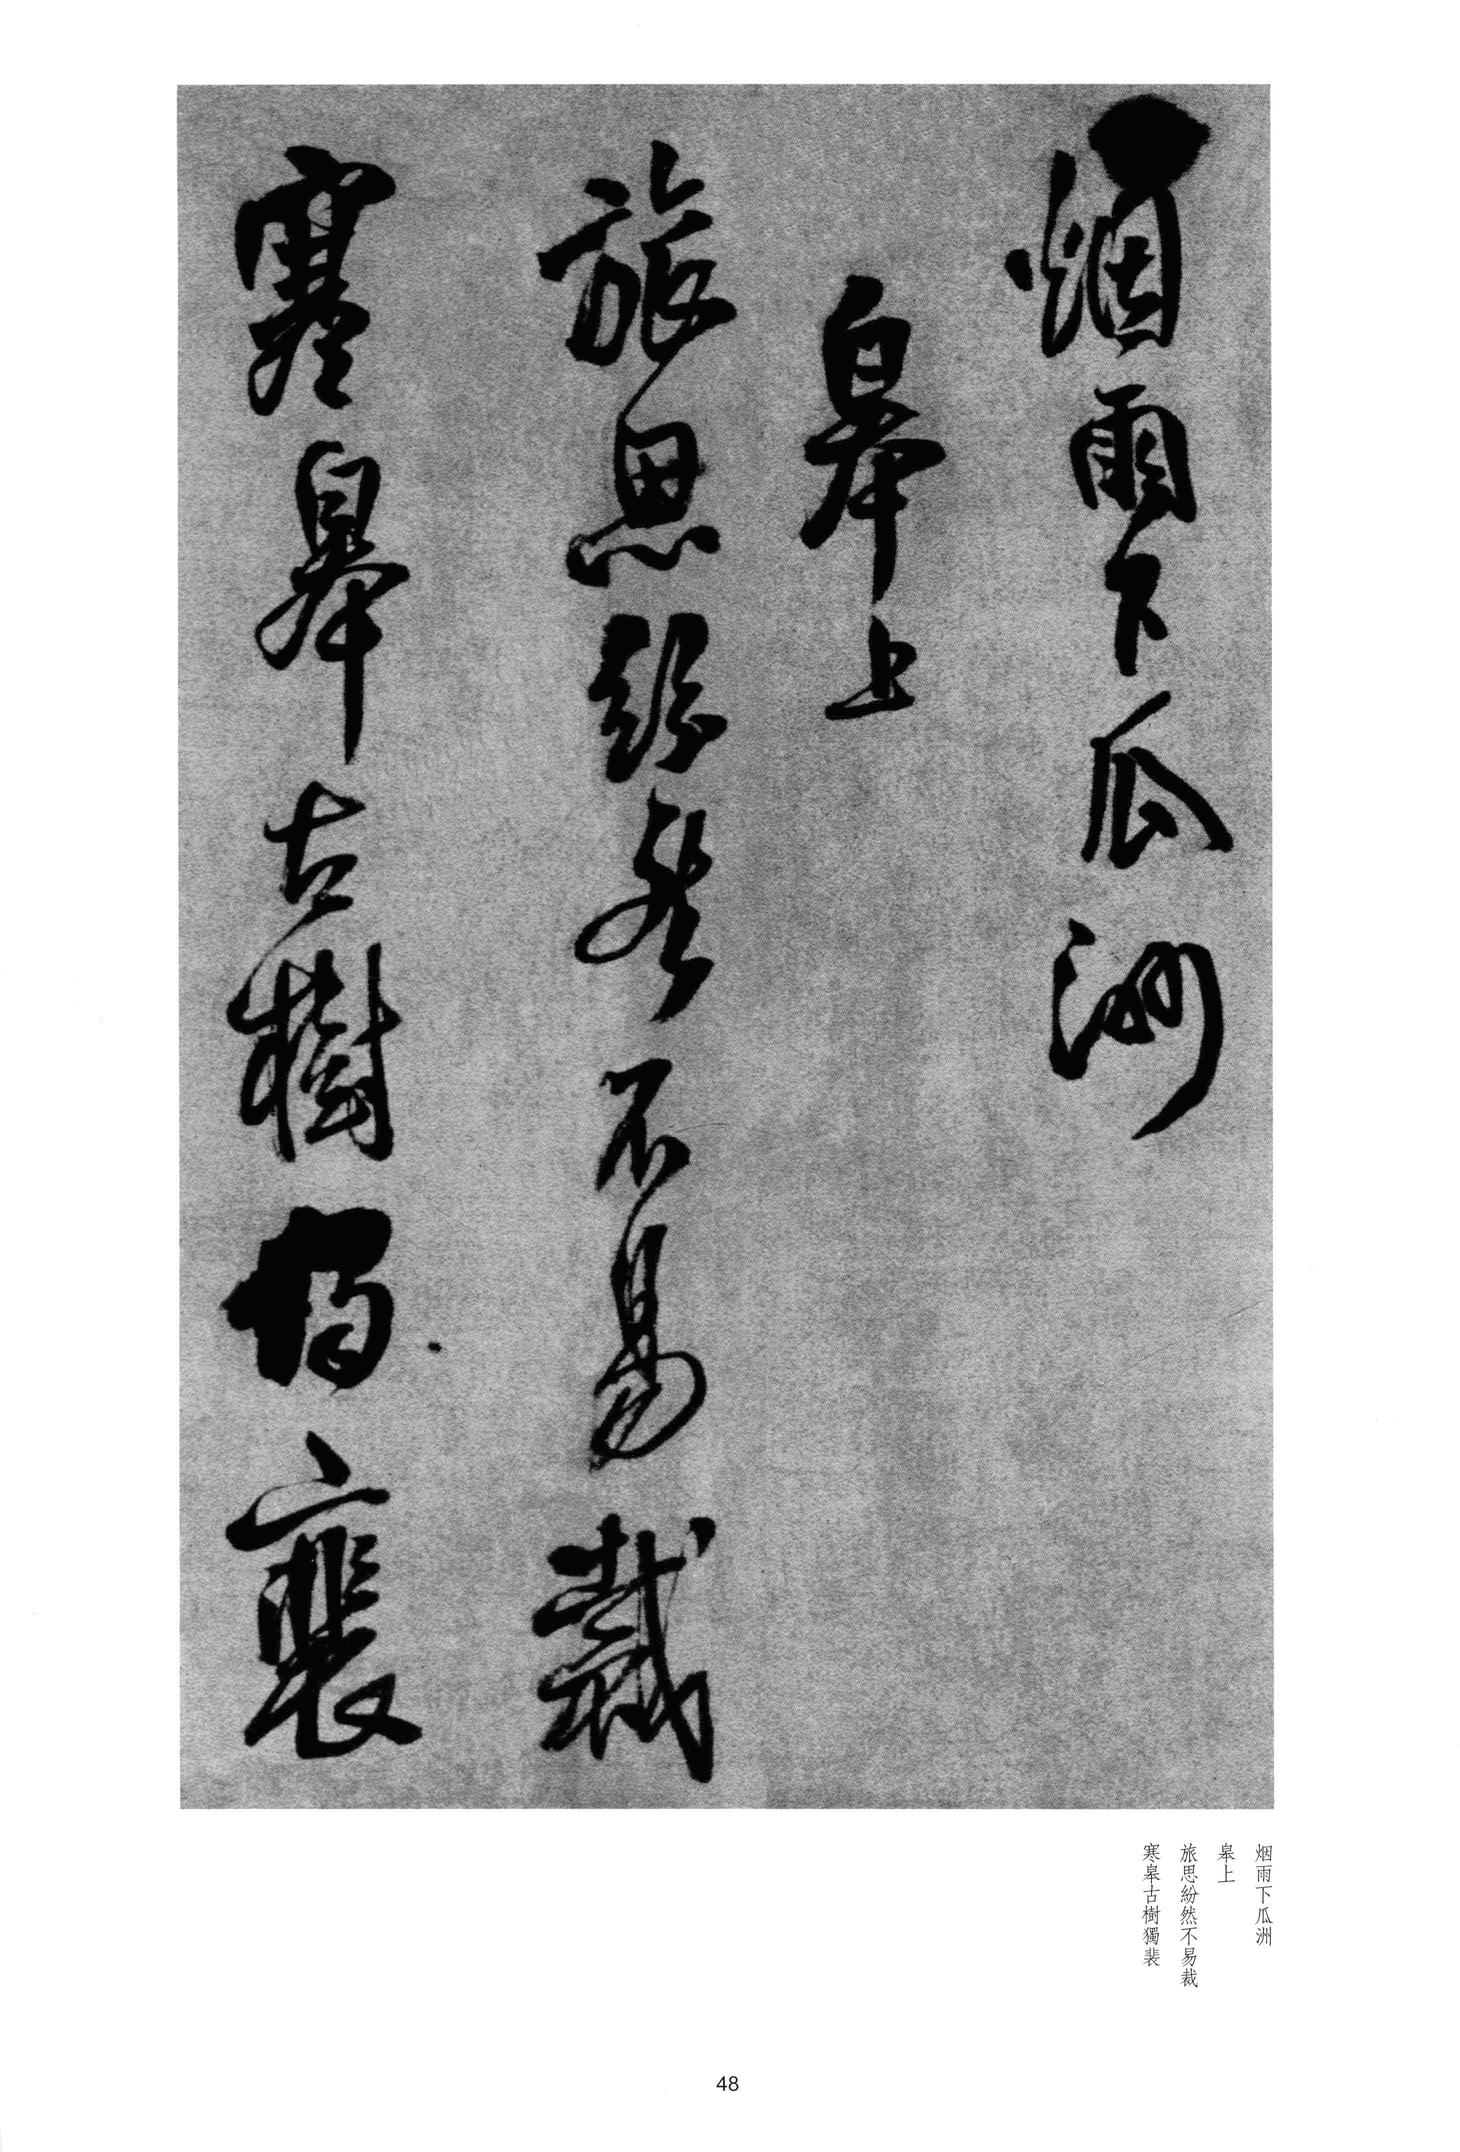 烟雨下瓜洲
皋上
旅思紛然不易裁
寒皋古樹獨裴
烟雨下瓜洲
皋上
旅思紛然不易裁
寒皋古樹獨裴
48